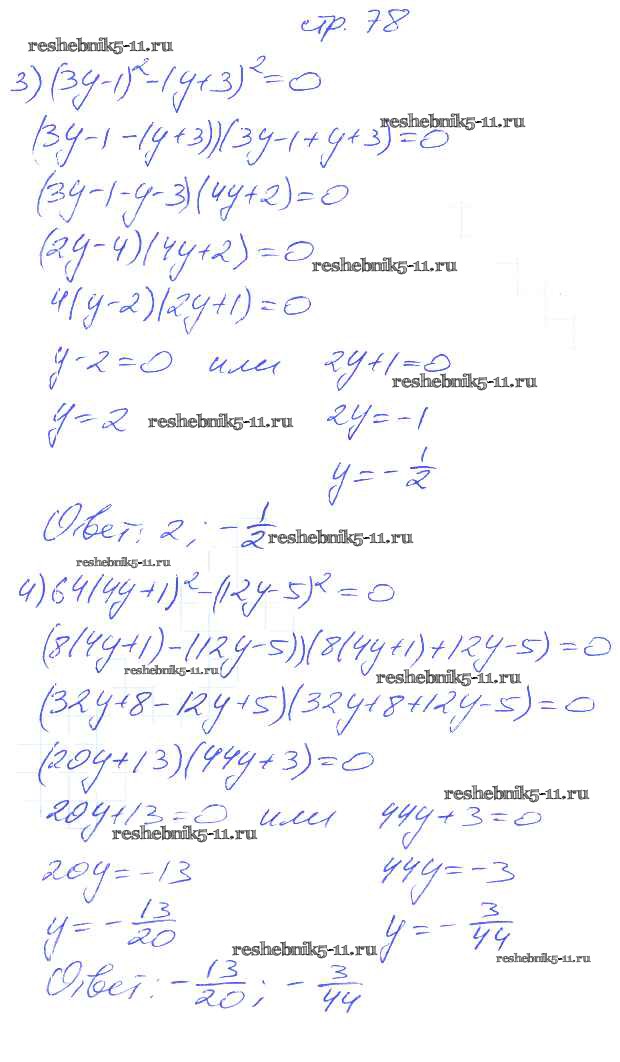 стр. 78
reshebnik5-11.ru
3) (3y-1)²-(y+3)²=0
reshebnik5-11.ru
(3y-1-(y+3))(3y-1+y+3)=0
(3y-1-y-3)(4y+2)=0
(2y-4)(4y+2)=0
reshebnik5-11.ru
4(y-2)(2y+1)=0
y-2=0 или 2y+1=0
reshebnik5-11.ru
y=2 reshebnik5-11.ru 2y=-1
y=-1/2
Ответ: 2; -1/2
reshebnik5-11.ru
reshebnik5-11.ru
4) 64(4y+1)²-(12y-5)²=0
(8(4y+1)-(12y-5))(8(4y+1)+12y-5)=0
reshebnik5-11.ru reshebnik5-11.ru
(32y+8-12y+5)(32y+8+12y-5)=0
(20y+13)(44y+3)=0
reshebnik5-11.ru
20y+13=0 или 44y+3=0
reshebnik5-11.ru
20y=-13 44y=-3
y=-13/20 y=-3/44
reshebnik5-11.ru reshebnik5-11.ru
Ответ: -13/20; -3/44